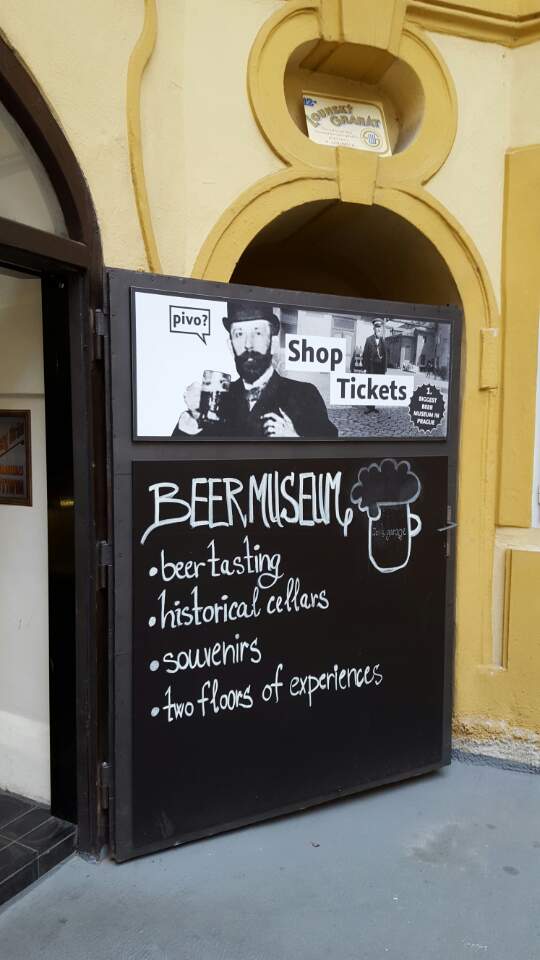 12°
LOUNSKÝ
GRANÁT
pivo?
Shop
Tickets
1.
BIGGEST
BEER
MUSEUM IN
PRAGUE
BEER MUSEUM
•beer tasting
•historical cellars
•souvenirs
•two floors of experiences